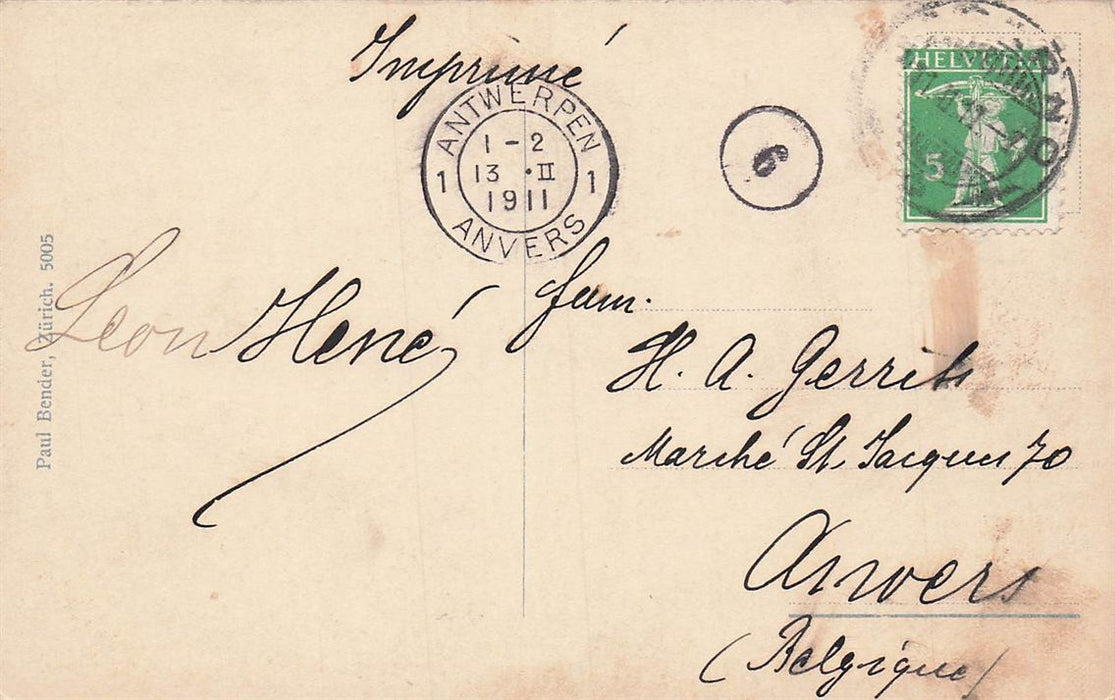 Imprimé
ANTWERPEN
1-2
13 · II
1 1
1911
ANVERS
6
HELVETIA
5
Paul Bender, Zürich. 5005
Leon Hené
fam.
H. A. Gerrits
Marché St. Jacques 70
Anvers
(Belgique)